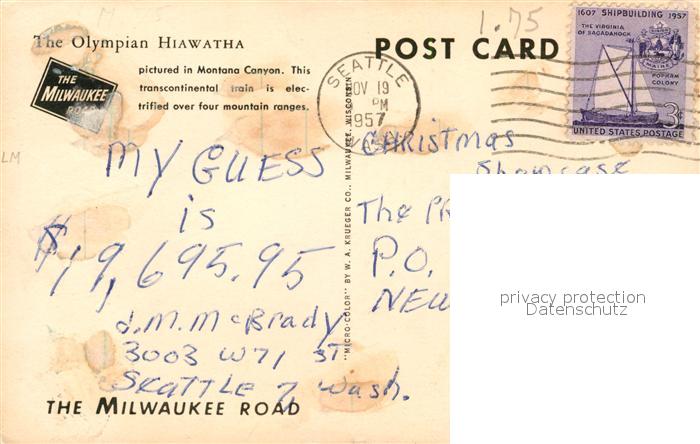 1.75
The Olympian HIAWATHA
POST CARD
1607 SHIPBUILDING 1957
THE VIRGINIA
OF SAGADAHOCK
MAINE
POPHAM
COLONY
3¢
UNITED STATES POSTAGE
SEATTLE
NOV 19
PM
1957
pictured in Montana Canyon. This
transcontinental train is elec-
trified over four mountain ranges.
THE
MILWAUKEE
ROAD
LM
MY GUESS
is
$19,695.95
J.M. McBrady
3003 W 71 ST
SEATTLE 7, Wash.
THE MILWAUKEE ROAD
"MICRO-COLOR" BY W. A. KRUEGER CO., MILWAUKEE, WISCONSIN
CHRISTMAS
Showcase
The PR
P.O.
NEW
privacy protection
Datenschutz